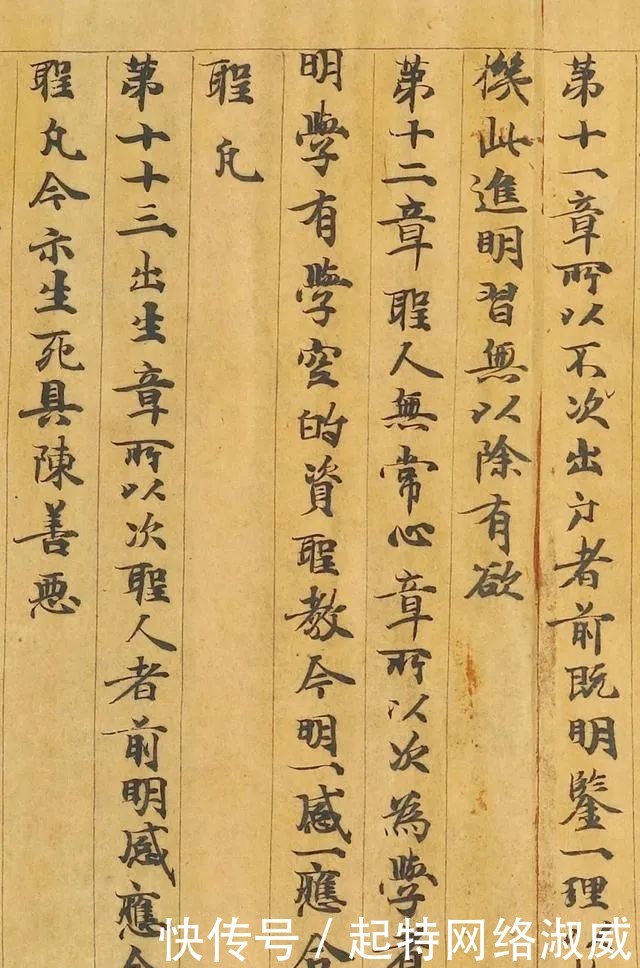 第十一章所以不次出户者前既明鑒一理
機此進明習無以除有欲
第十二章聖人無常心章所以次為學有
明學有學空的資聖教今明一感一應合
聖凡
第十十三出生章所以次聖人者前明感應合
聖凡今示生死具陳善惡
快传号 / 起特网络淑威